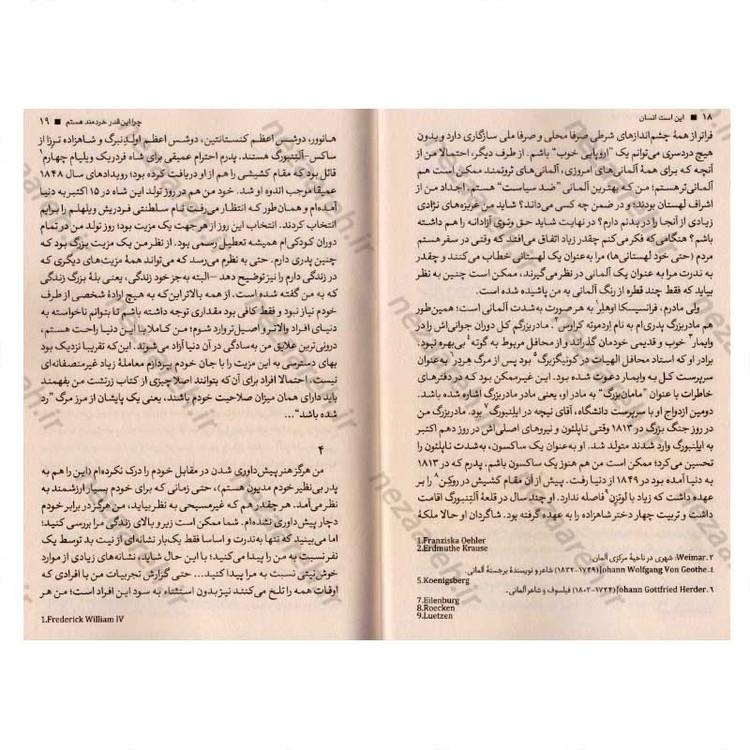 ۱۸ ■ این است انسان
فراتر از همهٔ چشم‌اندازهای شرطی صرفا محلی و صرفا ملی سازگاری دارد و بدون
هیچ دردسری می‌توانم یک "اروپایی خوب" باشم. از طرف دیگر، احتمالا من از
آنچه که برای همهٔ آلمانی‌های امروزی، آلمانی‌های ثروتمند ممکن است هم
آلمانی‌تر هستم؛ من که بهترین آلمانی "ضد سیاست" هستم. اجداد من از
اشراف لهستان بودند؛ و در ضمن چه کسی می‌داند؟ شاید من غریزه‌های نژادی
زیادی از آنجا را در بدنم دارم؟ در نهایت شاید حق وتوی آزادانه را هم داشته
باشم؟ هنگامی‌که فکر می‌کنم چقدر زیاد اتفاق می‌افتد که وقتی در سفر هستم
مردم (حتی خود لهستانی‌ها) مرا به‌عنوان یک لهستانی خطاب می‌کنند و چقدر
به ندرت مرا به عنوان یک آلمانی در نظر می‌گیرند، ممکن است چنین به نظر
بیاید که فقط چند قطره از رنگ آلمانی به من پاشیده شده است.
ولی مادرم، فرانسیسکا اوهلر۱ به هر صورت به‌شدت آلمانی است؛ همین‌طور
هم مادربزرگ پدری‌ام به نام اردموته کراوس۲. مادربزرگم کل دوران جوانی‌اش را در
وایمار۳ خوب و قدیمی خودمان گذراند و از محفل مربوط به گوته۴ بی‌بهره نبود.
برادر او که استاد محفل الهیات در کونیگزبرگ۵ بود پس از مرگ هردر۶ به‌عنوان
سرپرست کل به وایمار دعوت شده بود. این غیرممکن بود که در دفترهای
خاطرات با عنوان "مامان‌بزرگ" به مادر او، یعنی مادر مادربزرگ اشاره شده باشد.
دومین ازدواج او با سرپرست دانشگاه، آقای نیچه در ایلنبورگ۷ بود. مادربزرگ من
در روز جنگ بزرگ در ۱۸۱۳ وقتی ناپلئون و نیروهای اصلی‌اش در روز دهم اکتبر
به ایلنبورگ وارد شدند متولد شد. او به‌عنوان یک ساکسون، به‌شدت ناپلئون را
تحسین می‌کرد؛ ممکن است من هم هنوز یک ساکسون باشم. پدرم که در ۱۸۱۳
به دنیا آمده بود در ۱۸۴۹ از دنیا رفت. پیش از آن مقام کشیشی در روکن۸ را بر
عهده داشت که زیاد با لوتزن۹ فاصله ندارد. او چند سال در قلعهٔ آلتنبورگ اقامت
داشت و تربیت چهار دختر شاهزاده را به عهده گرفته بود. شاگردان او حالا ملکهٔ
1.Franziska Oehler
2.Erdmuthe Krause
۳.Weimar: شهری در ناحیهٔ مرکزی آلمان.
۴.Johann Wolfgang Von Geothe (۱۷۴۹-۱۸۳۲) شاعر و نویسندهٔ برجستهٔ آلمانی.
5.Koenigsberg
۶.Johann Gottfried Herder (۱۷۴۴-۱۸۰۳) فیلسوف و شاعر آلمانی.
7.Eilenburg
8.Roecken
9.Luetzen
چرا این‌قدر خردمند هستم ■ ۱۹
هانوور، دوشس اعظم کنستانتین، دوشس اعظم اولدنبرگ و شاهزاده ترزا از
ساکس-آلتنبورگ هستند. پدرم احترام عمیقی برای شاه فردریک ویلیام چهارم۱
قائل بود که مقام کشیشی را هم از او دریافت کرده بود؛ رویدادهای سال ۱۸۴۸
عمیقا موجب اندوه او شد. خود من هم در روز تولد این شاه در ۱۵ اکتبر به دنیا
آمده‌ام و همان‌طور که انتظار می‌رفت نام سلطنتی فردریش ویلهلم را برایم
انتخاب کردند. انتخاب این روز از هر جهت یک مزیت بود؛ روز تولد من در تمام
دوران کودکی‌ام همیشه تعطیل رسمی بود. از نظر من یک مزیت بزرگ بود که
چنین پدری دارم. حتی به نظرم می‌رسد که می‌تواند همهٔ مزیت‌های دیگری که
در زندگی دارم را نیز توضیح دهد -البته به‌جز خود زندگی، یعنی بلهٔ بزرگ زندگی
که به من گفته شده است. از همه بالاتر این‌که به هیچ ارادهٔ شخصی از طرف
خودم نیاز نبود و فقط کافی بود مقداری توجه داشته باشم تا بتوانم ناخواسته به
دنیای افراد بالاتر و اصیل‌تر وارد شوم؛ من کاملا با این دنیا راحت هستم،
درونی‌ترین علایق من به‌سادگی در آن دنیا آزاد می‌شوند. این‌که تقریبا نزدیک بود
بهای دسترسی به این مزیت را با جان خودم بپردازم معاملهٔ زیاد غیرمنصفانه‌ای
نیست. احتمالا افراد برای آن که بتوانند اصلا چیزی از کتاب زرتشت من بفهمند
باید دارای همان میزان صلاحیت خودم باشند، یعنی یک پایشان از مرز مرگ "رد
شده باشد"...
۴
من هرگز هنر پیش‌داوری شدن در مقابل خودم را درک نکرده‌ام (این را هم به
پدر بی‌نظیر خودم مدیون هستم)، حتی زمانی که برای خودم بسیار ارزشمند به
نظر می‌آمد. هر چقدر هم که غیرمسیحی به نظر بیاید، من هرگز در برابر خودم
دچار پیش‌داوری نشده‌ام. شما ممکن است زیر و بالای زندگی مرا بررسی کنید؛
اما می‌بینید که تنها به‌ندرت و اساسا فقط یک‌بار نشانه‌ای از نیت بد توسط یک
نفر نسبت به من را پیدا می‌کنید؛ با این حال شاید، نشانه‌های زیادی از موارد
خوش‌نیتی نسبت به مرا پیدا کنید.... حتی گزارش تجربیات من با افرادی که
اوقات همه را تلخ می‌کنند نیز بدون استثناء به سود این افراد است؛ من هر
1.Frederick William IV